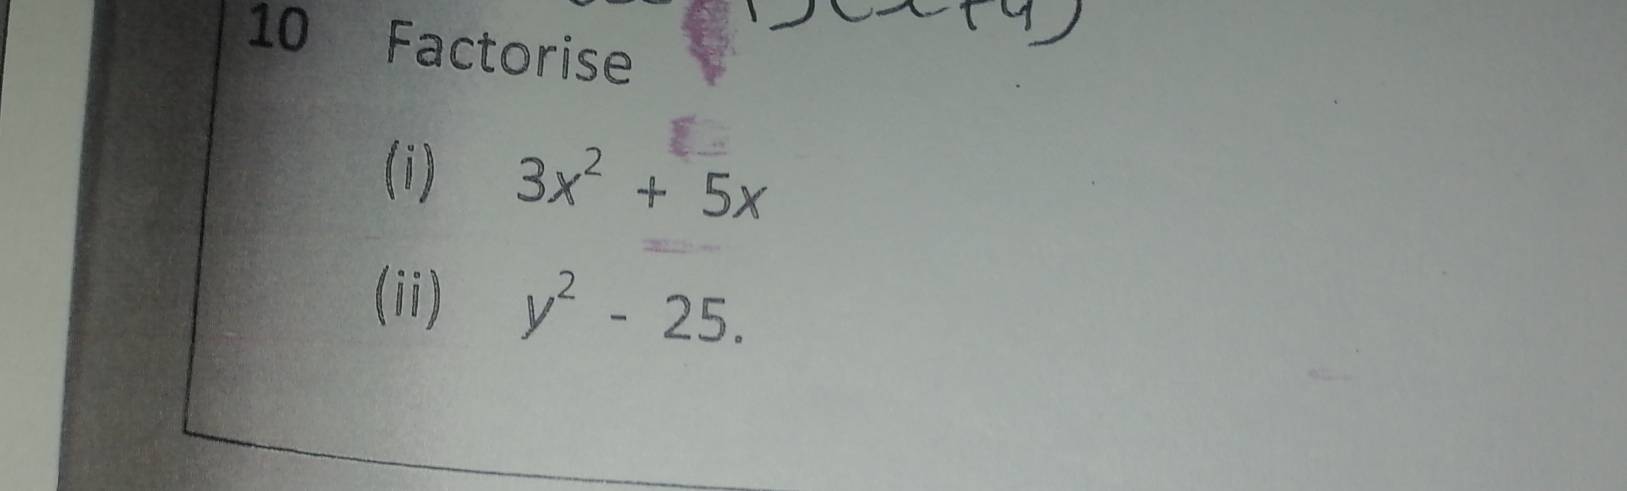 10 Factorise
(i) 3x² + 5x
(ii) y² - 25.